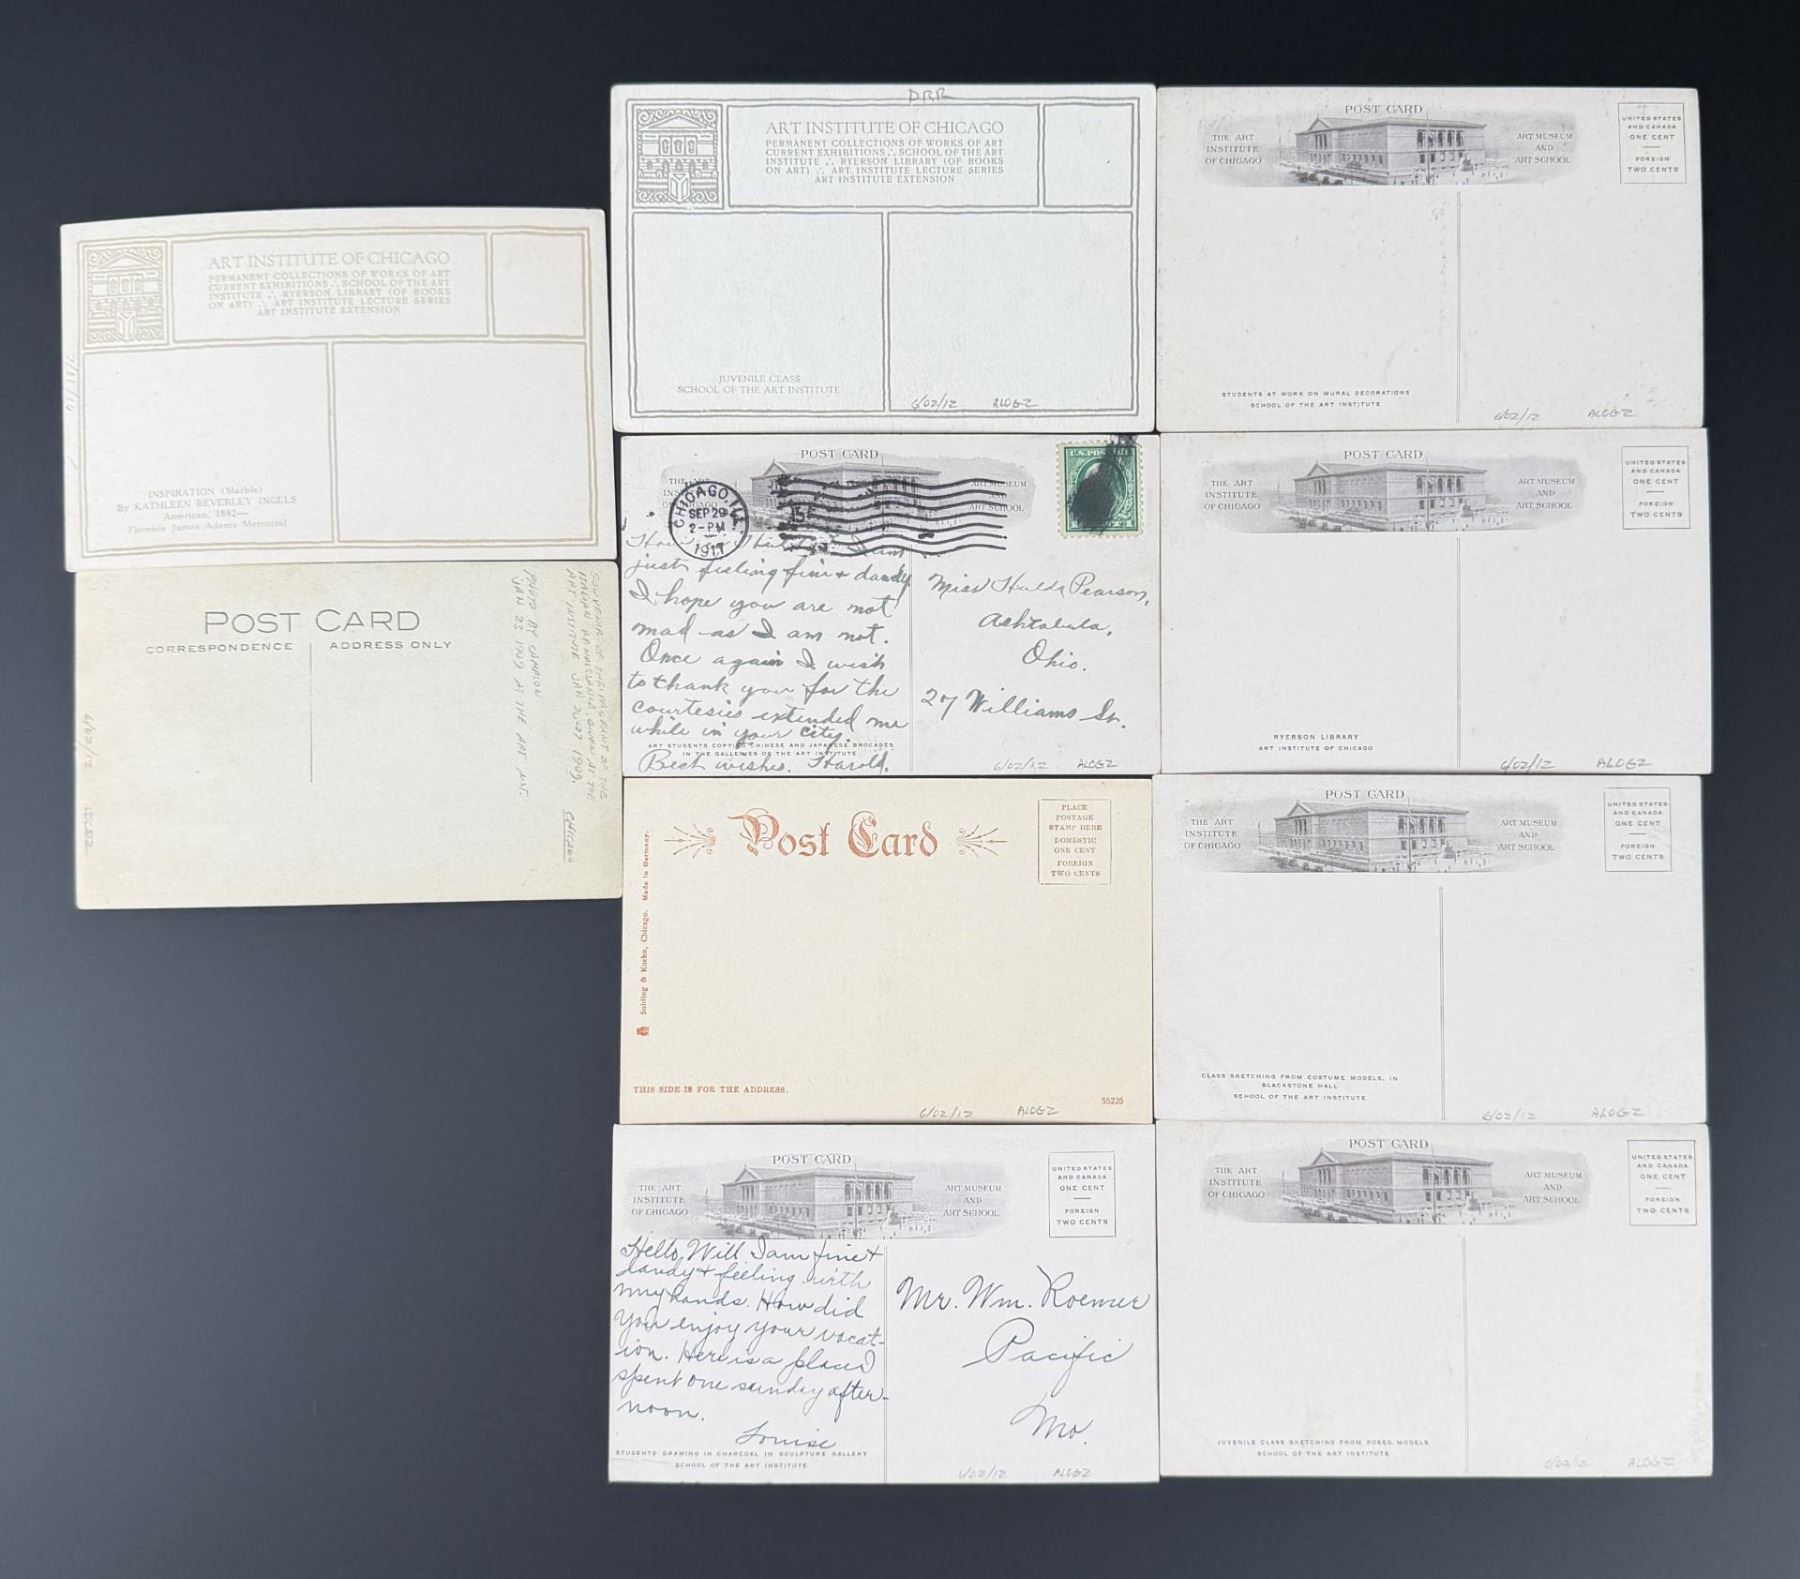 ART INSTITUTE OF CHICAGO
PERMANENT COLLECTIONS OF WORKS OF ART
CURRENT EXHIBITIONS ∴ SCHOOL OF THE ART
INSTITUTE ∴ RYERSON LIBRARY (OF BOOKS
ON ART) ∴ ART INSTITUTE LECTURE SERIES
ART INSTITUTE EXTENSION
INSPIRATION (Marble)
By KATHLEEN BEVERLEY INGELS
American, 1882—
Florence James Adams Memorial
POST CARD
CORRESPONDENCE
ADDRESS ONLY
PHOTO BY
JAN 23 1909 AT THE ART INST.
SOUVENIR OF THE
ART INSTITUTE JAN 20-27 1909
CHICAGO
6/02/12
DRR
ART INSTITUTE OF CHICAGO
PERMANENT COLLECTIONS OF WORKS OF ART
CURRENT EXHIBITIONS ∴ SCHOOL OF THE ART
INSTITUTE ∴ RYERSON LIBRARY (OF BOOKS
ON ART) ∴ ART INSTITUTE LECTURE SERIES
ART INSTITUTE EXTENSION
JUVENILE CLASS
SCHOOL OF THE ART INSTITUTE
6/02/12 ALOGZ
POST CARD
THE ART
INSTITUTE
OF CHICAGO
ART MUSEUM
AND
ART SCHOOL
CHICAGO, ILL.
SEP 29
2-PM
1917
U.S. POSTAGE
just feeling fine + dandy
I hope you are not
mad as I am not.
Once again I wish
to thank you for the
courtesies extended me
while in your city.
Best wishes. Harold.
Miss Hulda Pearson,
Ashtabula,
Ohio.
27 Williams St.
ART STUDENTS COPYING CHINESE AND JAPANESE BROCADES
IN THE GALLERIES OF THE ART INSTITUTE
6/02/12 ALOGZ
Post Card
PLACE
POSTAGE
STAMP HERE
DOMESTIC
ONE CENT
FOREIGN
TWO CENTS
Solding & Koehn, Chicago. Made in Germany.
THIS SIDE IS FOR THE ADDRESS.
55225
6/02/12 ALOGZ
POST CARD
THE ART
INSTITUTE
OF CHICAGO
ART MUSEUM
AND
ART SCHOOL
UNITED STATES
AND CANADA
ONE CENT
FOREIGN
TWO CENTS
Hello, Will I am fine +
dandy + feeling with
my hands. How did
you enjoy your vacat-
ion. Here is a place I
spent one sunday after-
noon.
Louise
Mr. Wm. Roemer
Pacific
Mo.
STUDENTS DRAWING IN CHARCOAL IN SCULPTURE GALLERY
SCHOOL OF THE ART INSTITUTE
6/02/12 ALOGZ
POST CARD
THE ART
INSTITUTE
OF CHICAGO
ART MUSEUM
AND
ART SCHOOL
UNITED STATES
AND CANADA
ONE CENT
FOREIGN
TWO CENTS
STUDENTS AT WORK ON MURAL DECORATIONS
SCHOOL OF THE ART INSTITUTE
6/02/12 ALOGZ
POST CARD
THE ART
INSTITUTE
OF CHICAGO
ART MUSEUM
AND
ART SCHOOL
UNITED STATES
AND CANADA
ONE CENT
FOREIGN
TWO CENTS
RYERSON LIBRARY
ART INSTITUTE OF CHICAGO
6/02/12 ALOGZ
POST CARD
THE ART
INSTITUTE
OF CHICAGO
ART MUSEUM
AND
ART SCHOOL
UNITED STATES
AND CANADA
ONE CENT
FOREIGN
TWO CENTS
CLASS SKETCHING FROM COSTUME MODELS, IN
BLACKSTONE HALL
SCHOOL OF THE ART INSTITUTE
6/02/12 ALOGZ
POST CARD
THE ART
INSTITUTE
OF CHICAGO
ART MUSEUM
AND
ART SCHOOL
UNITED STATES
AND CANADA
ONE CENT
FOREIGN
TWO CENTS
JUVENILE CLASS SKETCHING FROM POSED MODELS
SCHOOL OF THE ART INSTITUTE
6/02/12 ALOGZ